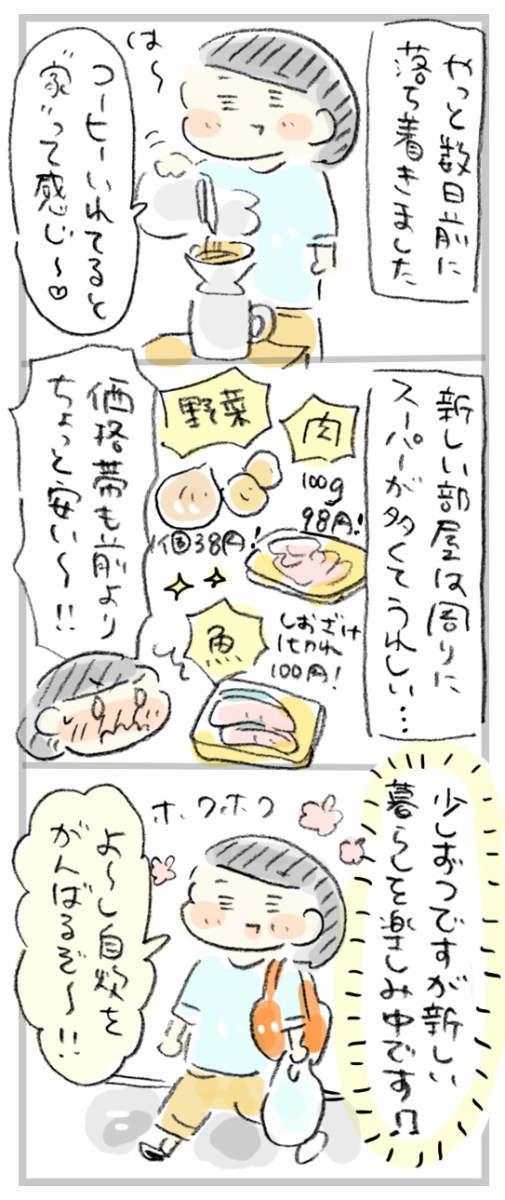 やっと数日前に
落ち着きました
は〜
コーヒーいれてると
"家"って感じ〜♡
新しい部屋は周りに
スーパーが多くてうれしい…
肉
100g
98円!
野菜
1個38円!
魚
しおざけ
1切れ
100円!
価格帯も前より
ちょっと安い〜!!
少しずつですが新しい
暮らしを楽しみ中です♫
ホクホク
よ〜し自炊を
がんばるぞ〜!!